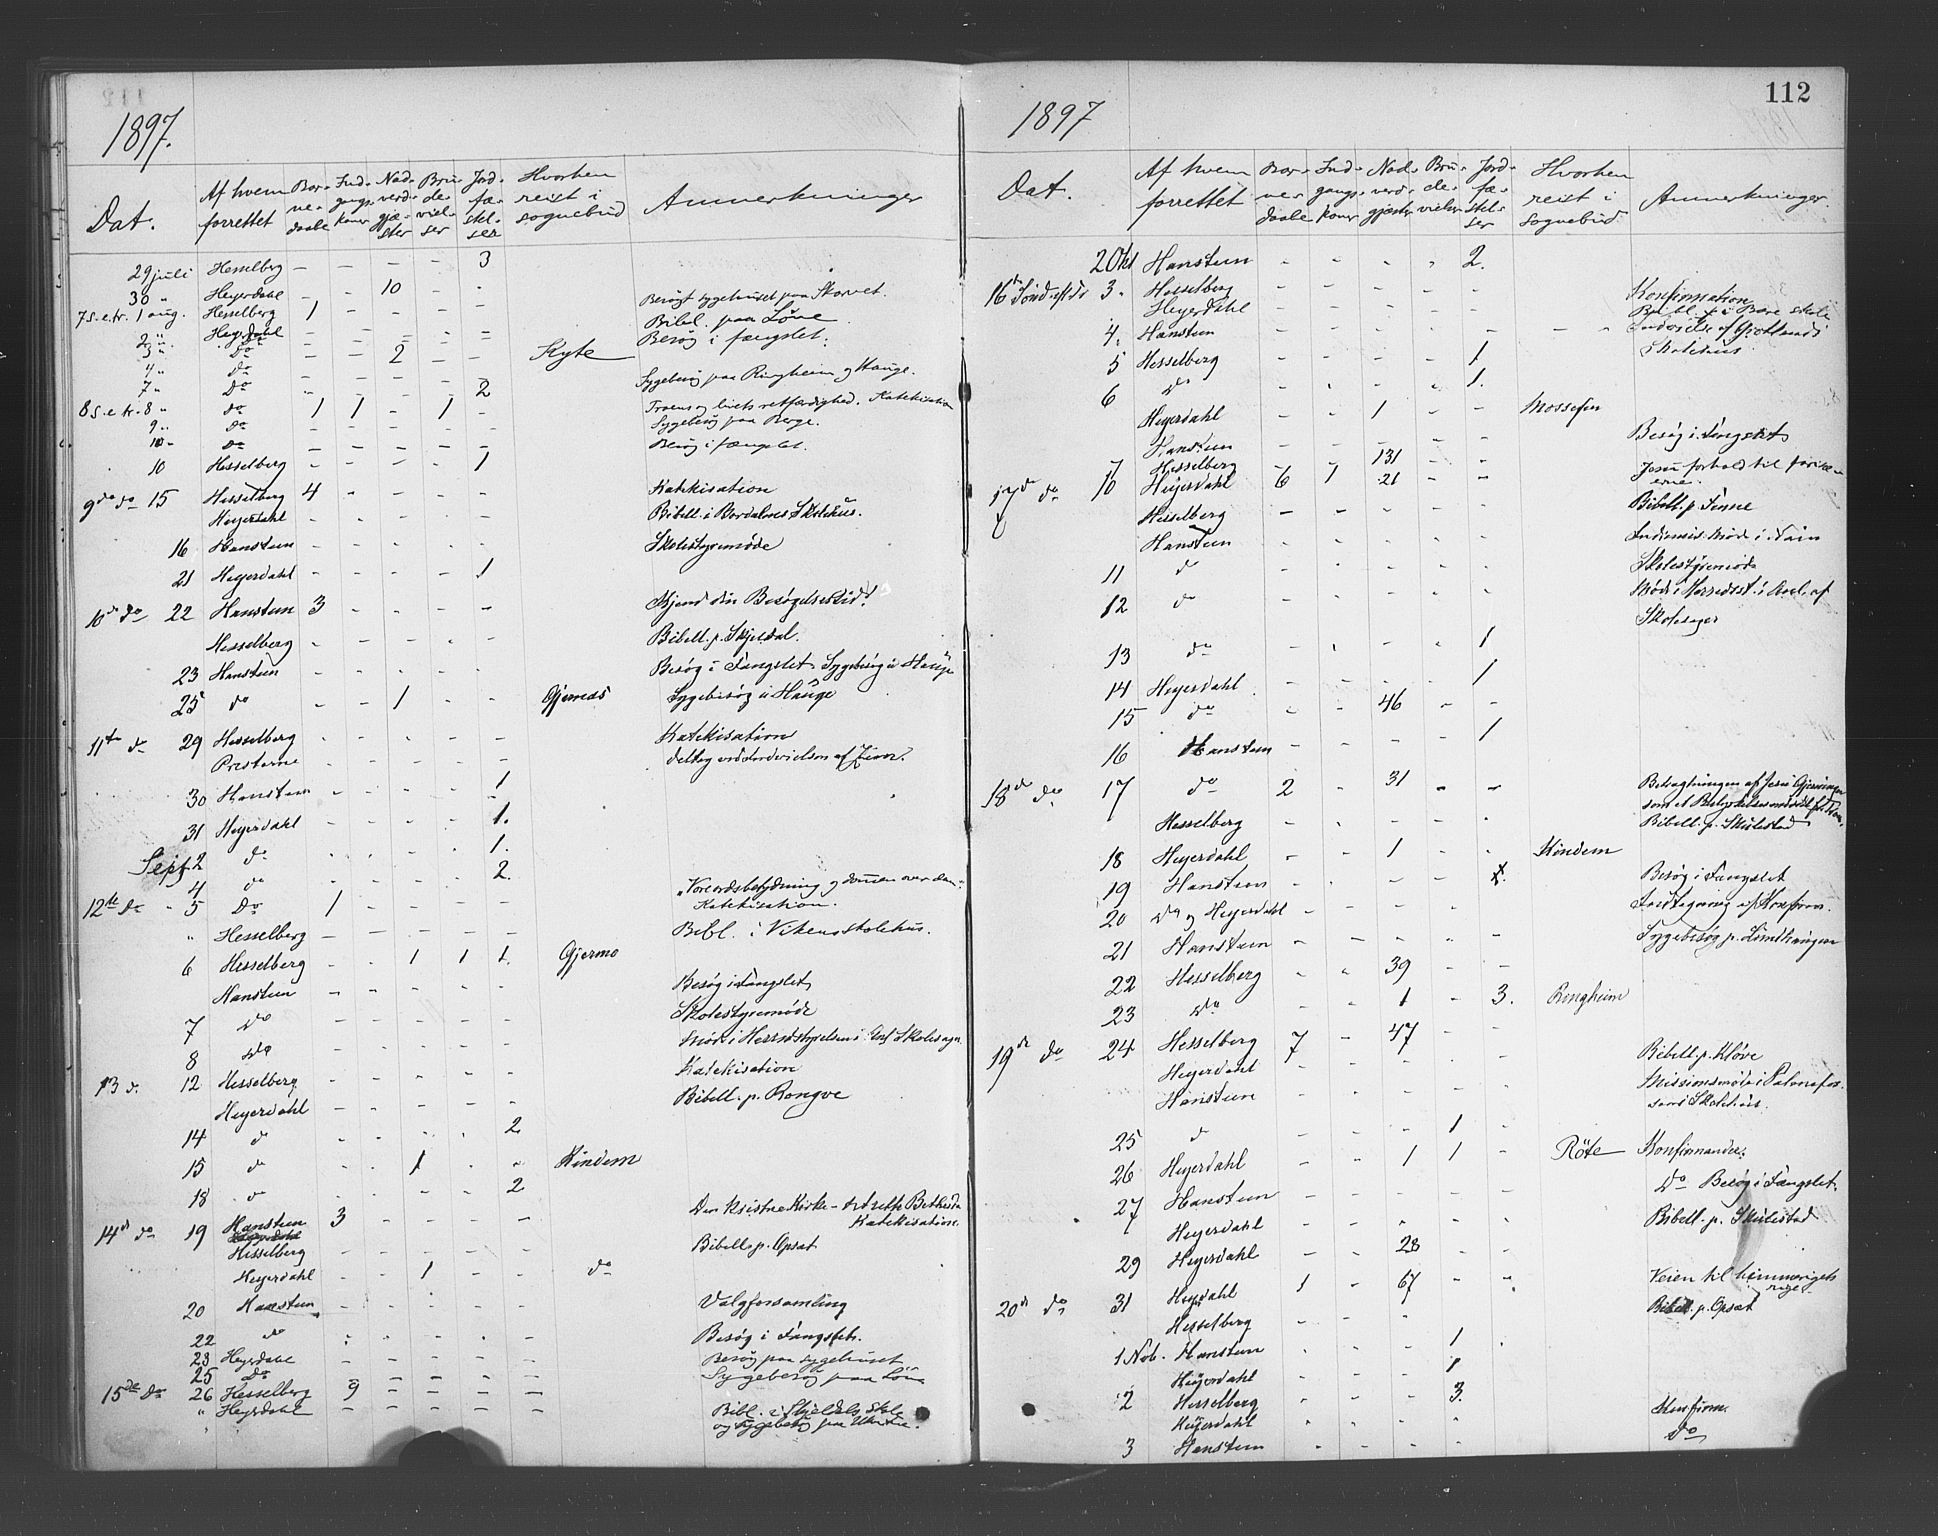 1897.
Dat. Af hvem forrettet Bar-ne-daabe Ind-gangs-koner Nad-verds-gjæ-ster Bru-de-viel-ser Jord-fæ-stel-ser Hvorhen reist i sognebud Anmerkninger
29 juli Hesselberg - - - - 3
30 " Heyerdahl - - 10 - - Besøgt sygehuset paa Skorvet.
7 s.e.tr. 1 aug. Hesselberg 1 - - - - Bibel. paa Løne
2 " Heyerdahl - - - - - Besøg i fængslet.
3 " do - - 2 - - Kyte
4 " do - - - - - Sygebesøg paa Ringheim og Hauge.
7 " do - - - - 2
8 s.e.tr. 8 " do 1 1 - 1 - Troens og livets retfærdighed. Katekisation
9 " do - - - - - Sygebesøg paa Berge.
10 " do - - - - - Besøg i fængslet.
10 Hesselberg - - - - 1
9de do 15 Hesselberg 4 - - - - Katekisation
Heyerdahl - - - - - Bibell. i Bordalens Skolehus.
16 Hansteen - - - - - Skolestyremøde
21 Heyerdahl - - - - 1
10de do 22 Hansteen 3 - - - - Kjend din Besøgelsestid!
Hesselberg - - - - - Bibell. p. Skjeldal.
23 Hansteen - - - - - Besøg i Fængslet, Sygebesøg i Hauge
25 do - - 1 - - Gjernæs Sygebesøg i Hauge
11te do 29 Hesselberg - - - - - Katekisation
Presterne - - - - -
30 Hansteen - - - - 1
31 Heyerdahl - - - - 1.
Sept. 2 do - - - - 1.
4 do - - - - 2.
12te do - 5 Do 1 - - - - "Vore ordsbetydning og dommen over dem".
Katekisation.
" Hesselberg - - - - - Bibl. i Vikens skolehus.
6 Hesselberg - - 1 1 1. Gjermo
Hansteen - - - - - Besøg i Fængslet
7 Do - - - - - Skolestyremøde
8 do - - - - - Møde i Herredsstyrelsen i Anl. Skolesager.
13 d. 12 Hesselberg - - - - - Katekisation
Heyerdahl - - - - - Bibell. p. Rongve
14 d - - - - 2
15 d - - 1 - - Kindem
18 d - - - - 2
14d do 19 Hansteen 3 - - - - Den kristne Kirke - det rette Bethesda
Katekisation.
Hesselberg - - - - - Bibell. p. Opsat
Heyerdahl - - 1 - - do
20 Hansteen - - - - - Valgforsamling
22 do - - - - - Besøg i Fængslet.
23 Heyerdahl - - - - - Besøg paa sygehuset
25 Do - - - - - Sygebesøg paa Løne
15de do 26 Hesselberg 9 - - - -
" Heyerdahl - - - - - Bibl. i Skjeldals Skole
og Sygebesøg paa
112
1897
Dat. Af hvem forrettet Bar-ne-daabe Ind-gangs-koner Nad-verds-gjester Bru-de-vielser Jord-fæ-stel-ser Hvorhen reist i sognebud Anmerkninger.
2 Okt Hansteen - - - - 2.
16de Sønd. e. tr. 3. Hesselberg - - - - - Konfirmation
Heyerdahl - - - - - Bibl. i Børe skole
4. Hansteen - - - - - Indvielse af Gjetlands
Skolehus
5 Hesselberg - - - - 1
6 do - - - - 1.
Heyerdahl - - 1 - - Mossefin
Hansteen - - - - - Besøg i Fængslet
7 Hesselberg - - 131 - -
17de do 10 Heyerdahl 6 1 21 - - Jesu forhold til farisæ-
erne.
Hesselberg - - - - - Bibell. p. Finne
Hansteen - - - - - Indremis. Møde i Nain
11 d - - - - - Skolestyremøde
12 d - - - - - Møde i Herredsst. i Anl. af
Skolesager
13 do - - - - 1
14 Heyerdahl - - - - 1
15 do - - 46 - -
16 Hansteen - - - - 1
18de do 17 do 2 - 31 - - Betragtningen af Jesu Gjerninger
Hesselberg - - - - - Bibell. p. Skulestad
18 Heyerdahl - - 1 - - Kindem
19 Hansteen - - - - Besøg i Fængslet
20 do og Heyerdahl - - - - - Indtegning af Konfirm.
21 Hansteen - - - - - Sygebesøg p. Lundhaugen
22 Hesselberg - - 39 - -
23 do - - 1 - 3. Rongheim
19de do 24 Hesselberg 7 - 47 - -
Heyerdahl 7 - - - - Bibell. p. Kløve
Hansteen - - - - - Missionsmøde i Palmafos-
sens Skolehus.
25 d - - - 1 -
26 Heyerdahl - - 1 1 - Røte Konfirmander.
27 Hansteen - - - - - Do Besøg i Fængslet
Heyerdahl - - - - - Bibell. p. Skulestad
29 Heyerdahl - - 28 - -
20de do 31 Heyerdahl 1 - 67 - - Veien til himmeriges
rige
Hesselberg - - - - Bibell. p. Opsat
1 Nob. Hansteen - - - 1
Heyerdahl - - - 1
2 Hesselberg - - - 3.
Heyerdahl - - - - Konfirm.
3 Hansteen - - - - Do